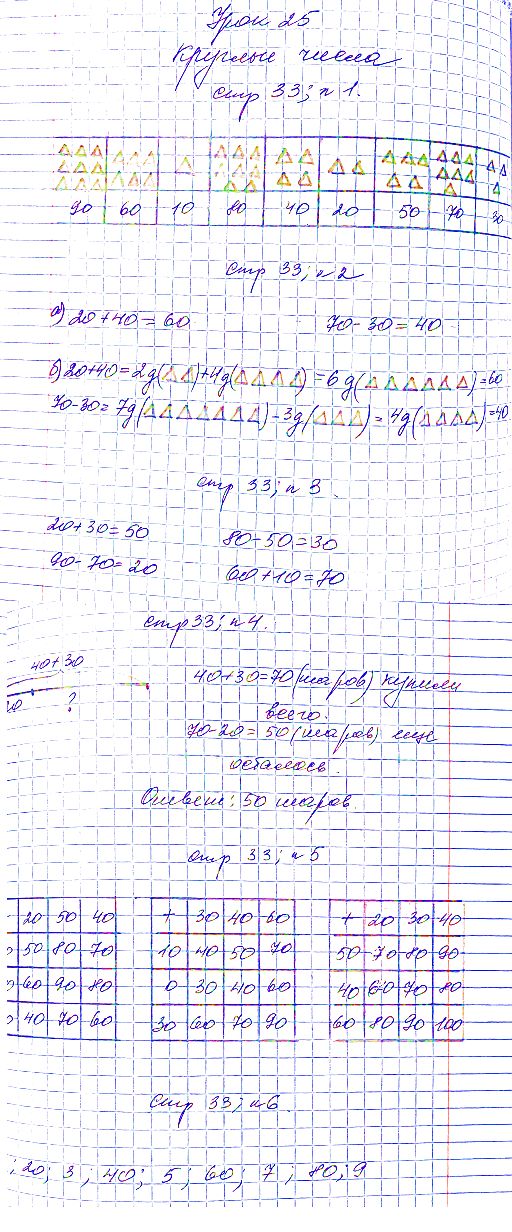 Урок 25
Круглые числа
стр 33; н 1.
90 60 10 80 40 20 50 70 30
стр 33; н 2
а) 20+40=60 70-30=40
б) 20+40=2д(△△)+4д(△△△△)=6д(△△△△△△)=60
70-30=7д(△△△△△△△)-3д(△△△)=4д(△△△△)=40
стр 33; н 3.
20+30=50 80-50=30
90-70=20 60+10=70
стр 33; н 4.
40+30
20 ?
40+30=70(шаров) купили
всего.
70-20=50(шаров) еще
осталось.
Ответ: 50 шаров.
стр 33; н 5
20 50 40 + 30 40 60 + 20 30 40
50 80 70 10 40 50 70 50 70 80 90
60 90 80 0 30 40 60 40 60 70 80
40 70 60 30 60 70 90 60 80 90 100
стр 33; н 6.
; 20; 3; 40; 5; 60; 7; 80; 9